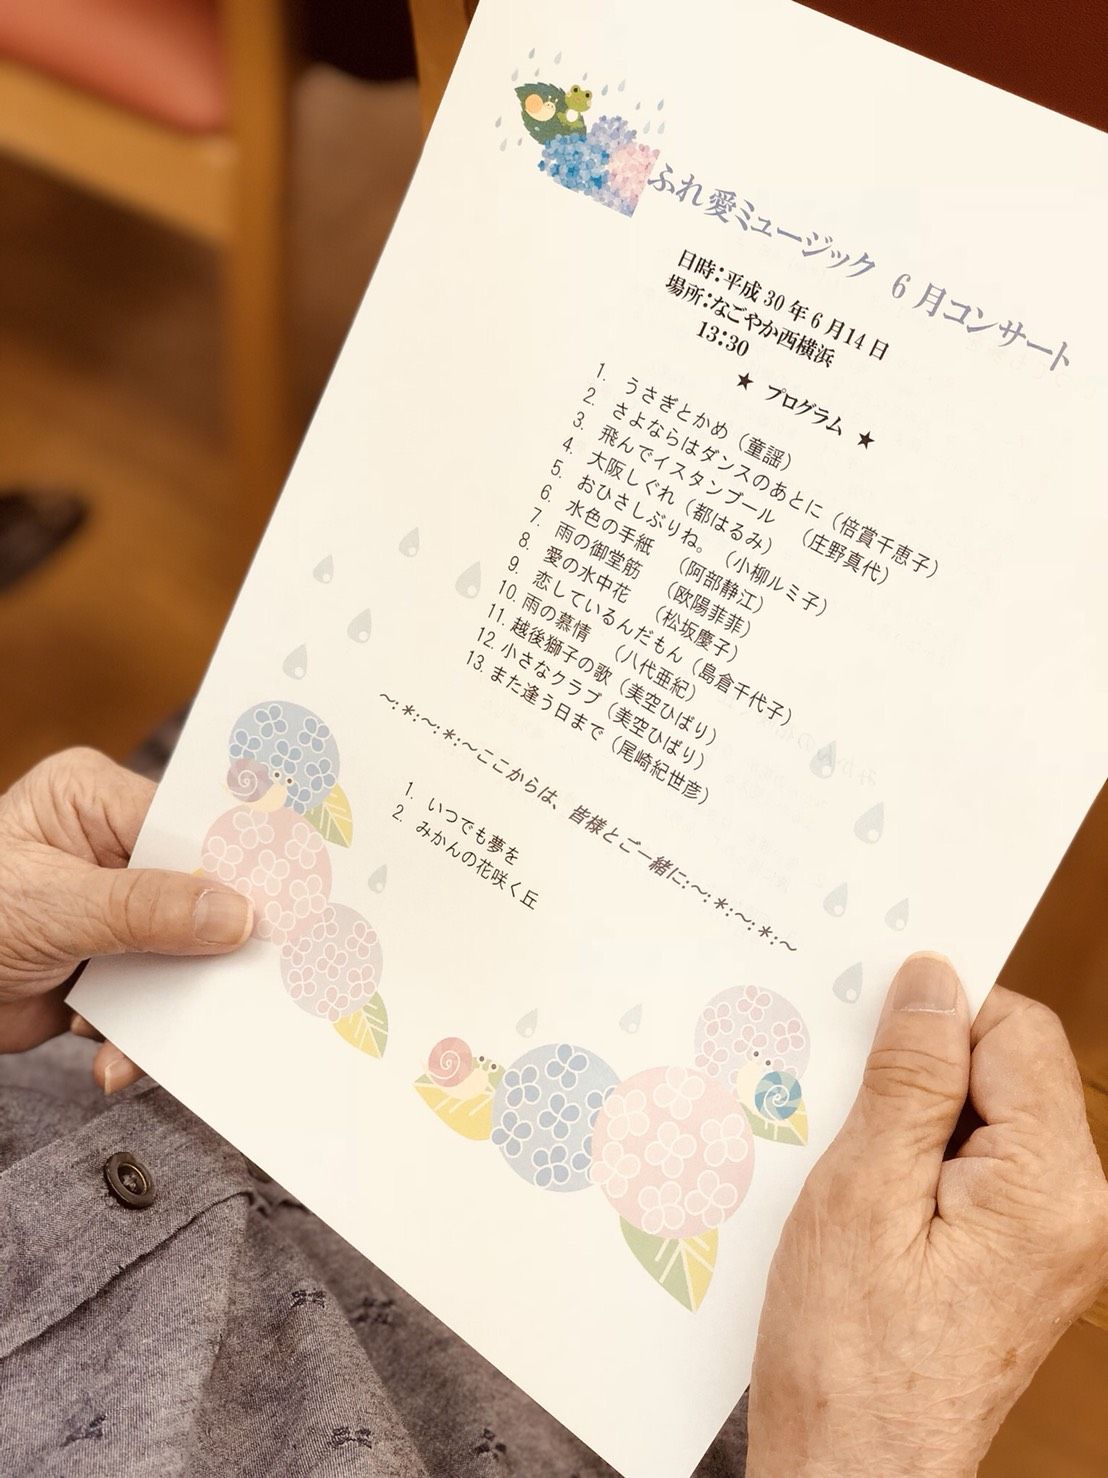 ふれ愛ミュージック 6月コンサート
日時:平成30年6月14日
場所:なごやか西横浜
13:30
★ プログラム ★
1. うさぎとかめ（童謡）
2. さよならはダンスのあとに（倍賞千恵子）
3. 飛んでイスタンブール （庄野真代）
4. 大阪しぐれ（都はるみ）
5. おひさしぶりね。（小柳ルミ子）
6. 水色の手紙 （阿部静江）
7. 雨の御堂筋 （欧陽菲菲）
8. 愛の水中花 （松坂慶子）
9. 恋しているんだもん（島倉千代子）
10. 雨の慕情 （八代亜紀）
11. 越後獅子の歌（美空ひばり）
12. 小さなクラブ（美空ひばり）
13. また逢う日まで（尾崎紀世彦）
～:＊:～:＊:～ここからは、皆様とご一緒に:～:＊:～:＊:～
1. いつでも夢を
2. みかんの花咲く丘